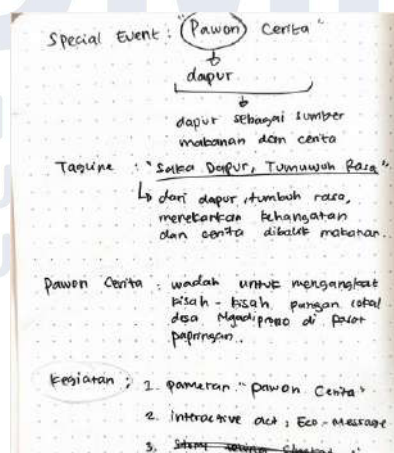 Special Event : "Pawon Cerita"
dapur
dapur sebagai sumber
makanan dan cerita
Tagline : "Saka Dapur, Tumuwuh Rasa"
dari dapur, tumbuh rasa,
menekankan kehangatan
dan cerita dibalik makanan..
Pawon Cerita : wadah untuk mengangkat
kisah - kisah pangan lokal
desa Ngadiprono di pasar
papringan..
Kegiatan : 1. pameran "Pawon Cerita"
2. interactive act : Eco - Message
3.